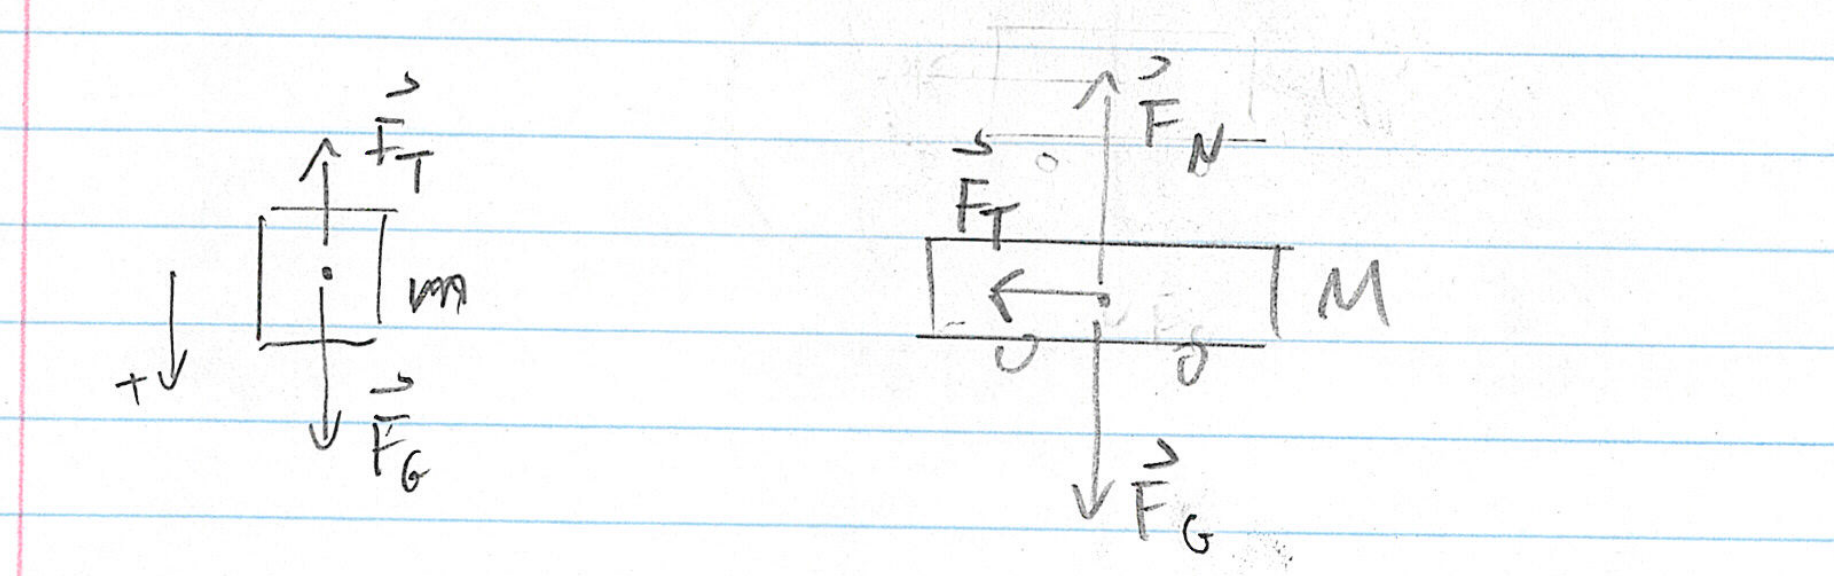 F⃗_T
m
+
F⃗_G
F⃗_N
F⃗_T
M
F⃗_G